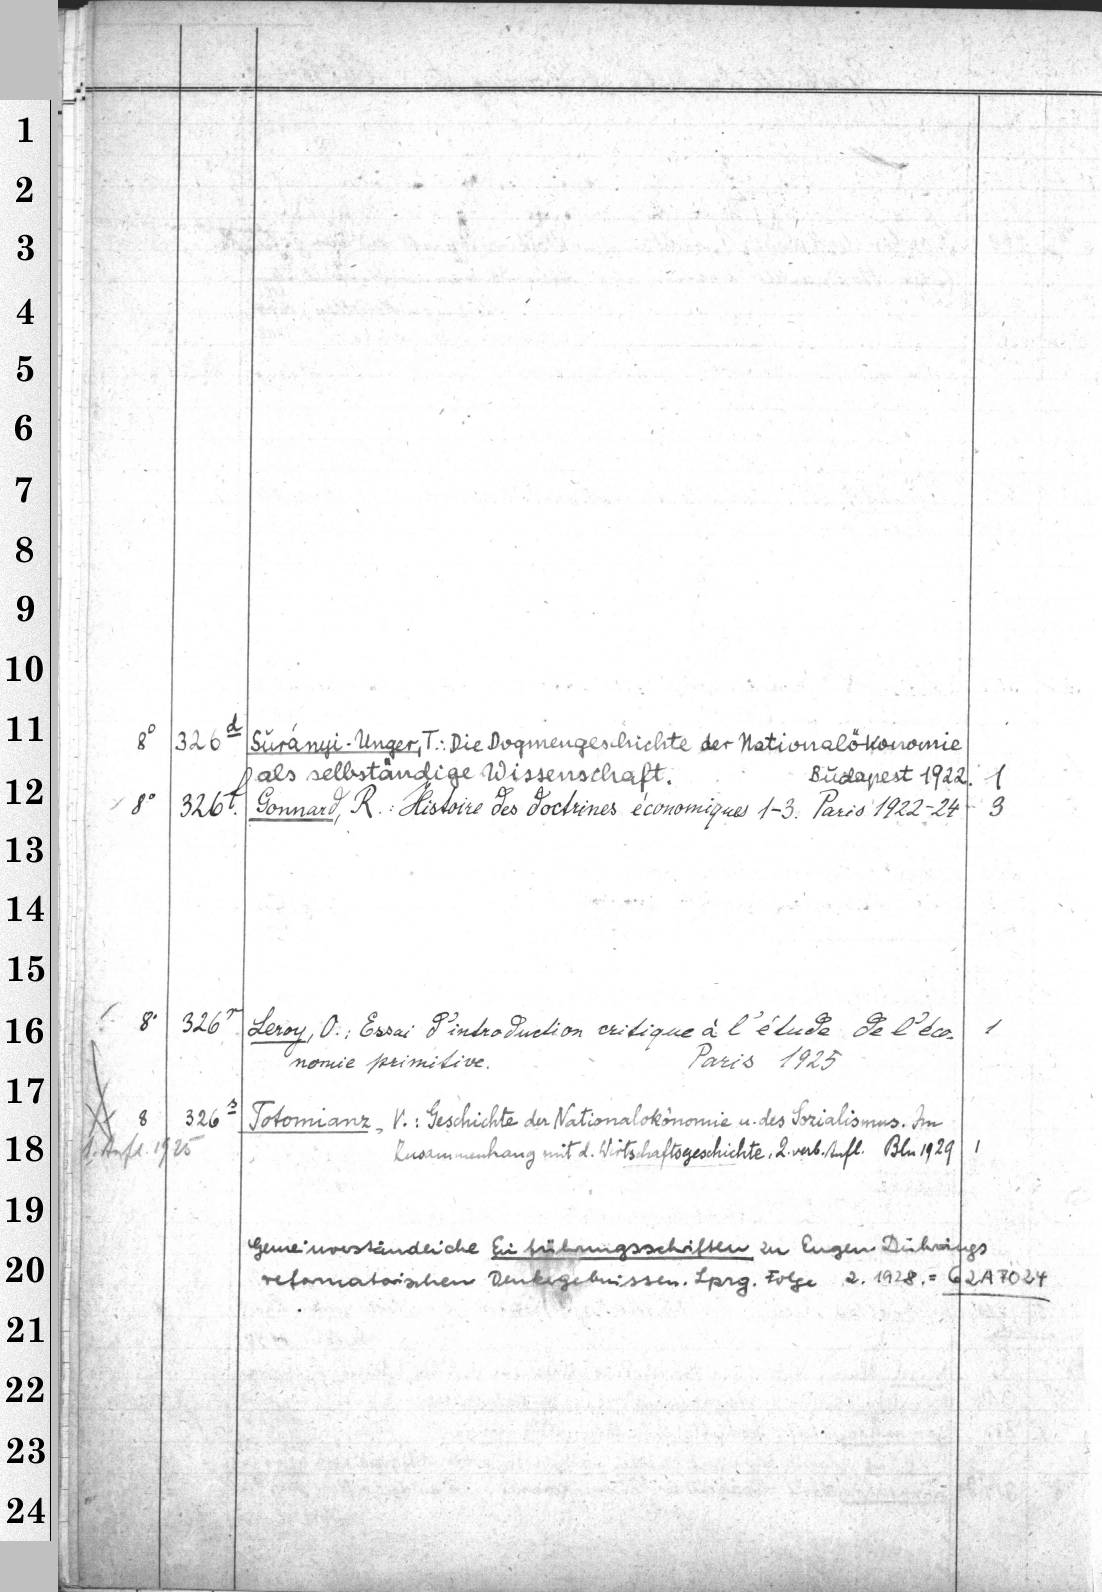 1
2
3
4
5
6
7
8
9
10
11
8° 326 d Surányi-Unger, T.: Die Dogmengeschichte der Nationalökonomie
als selbständige Wissenschaft. Budapest 1922. 1
12
8° 326 f. Gonnard, R.: Histoire des doctrines économiques 1-3. Paris 1922-24 3
13
14
15
16
8° 326 r Leroy, O.: Essai d'introduction critique à l'étude de l'éco- 1
nomie primitive. Paris 1925
17
8 326 s Totomianz, V.: Geschichte der Nationalökonomie u. des Sozialismus. Im
18
1. Aufl. 1925 Zusammenhang mit d. Wirtschaftsgeschichte. 2. verb. Aufl. Bln 1929 1
19
Gemeinverständliche Einführungsschriften zu Eugen Dührings
20
reformatorischen Denkergebnissen. Lpzg. Folge 2. 1928. = 62A7024
21
22
23
24